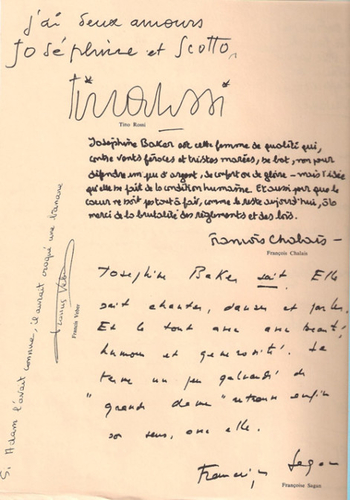 j'ai deux amours
Joséphine et Scotto,
Tino Rossi
Tino Rossi
Joséphine Baker est cette femme de qualité qui,
contre vents féroces et tristes marées, se bat, non pour
défendre un peu d'argent, de confort ou de gloire – mais l'idée
qu'elle se fait de la condition humaine. Et aussi pour que le
cœur ne soit pas tout à fait, comme le reste aujourd'hui, à la
merci de la brutalité des règlements et des lois.
François Chalais –
François Chalais
Joséphine Baker sait. Elle
sait chanter, danser et parler.
Et le tout avec avec beauté,
humour et générosité. Le
terme un peu galvaudé de
"grande dame" retrouve enfin
son sens, avec elle.
Françoise Sagan
Françoise Sagan
Si Adam l'avait connue, il aurait croqué une banane
Francis Veber